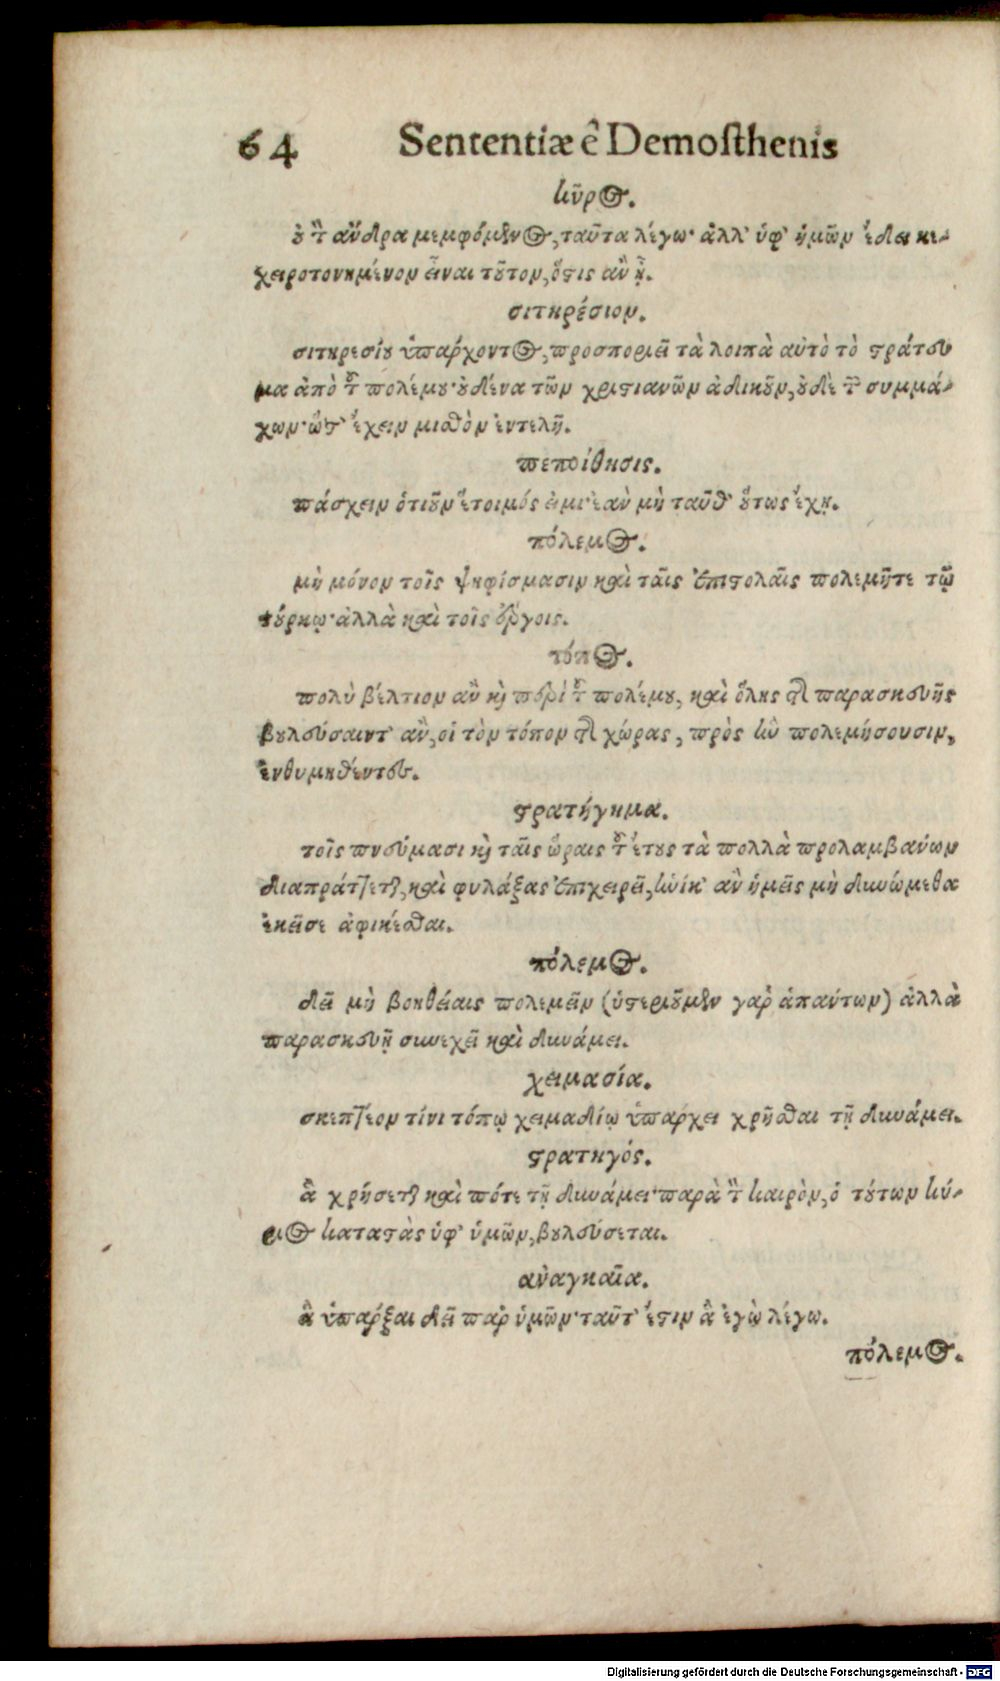 64 Sententiæ ê Demosthenis
κῦρος.
οὐ τὸν ἄνδρα μεμφόμενος, ταῦτα λέγω· ἀλλ' ὑφ' ἡμῶν ἔδει κε-
χειροτονημένον εἶναι τοῦτον, ὅστις ἂν ᾖ.
σιτηρέσιον.
σιτηρεσίου ὑπάρχοντος, προσποριεῖ τὰ λοιπὰ αὐτὸ τὸ στράτευ
μα ἀπὸ τοῦ πολέμου· οὐδένα τῶν χριστιανῶν ἀδικοῦν, οὐδὲ τῶν συμμά-
χων· ὥστ' ἔχειν μισθὸν ἐντελῆ.
πεποίθησις.
πάσχειν ὁτιοῦν ἕτοιμός εἰμι· ἐὰν μὴ ταῦθ' οὕτως ἔχῃ.
πόλεμος.
μὴ μόνον τοῖς ψηφίσμασιν καὶ ταῖς ἐπιστολαῖς πολεμῆτε τῷ
τούρκῳ· ἀλλὰ καὶ τοῖς ἔργοις.
τόπος.
πολὺ βέλτιον ἂν καὶ περὶ τοῦ πολέμου, καὶ ὅλης τῆς παρασκευῆς
βουλεύσαιντ' ἂν, οἱ τὸν τόπον τῆς χώρας, πρὸς ἣν πολεμήσουσιν,
ἐνθυμηθέντες.
στρατήγημα.
τοῖς πνεύμασι καὶ ταῖς ὥραις τοῦ ἔτους τὰ πολλὰ προλαμβάνων
διαπράττεται, καὶ φυλάξας ἐπιχειρεῖ, ἡνίκ' ἂν ἡμεῖς μὴ δυνώμεθα
ἐκεῖσε ἀφικέσθαι.
πόλεμος.
δεῖ μὴ βοηθείαις πολεμεῖν (ὑστεριοῦμεν γὰρ ἁπάντων) ἀλλὰ
παρασκευῇ συνεχεῖ καὶ δυνάμει.
χειμασία.
σκεπτέον τίνι τόπῳ χειμαδίῳ ὑπάρχει χρῆσθαι τῇ δυνάμει.
στρατηγός.
ἃ χρήσεται καὶ πότε τῇ δυνάμει· παρὰ τὸν καιρὸν, ὁ τούτων κύ-
ριος καταστὰς ὑφ' ὑμῶν, βουλεύσεται.
ἀναγκαῖα.
ἃ ὑπάρξαι δεῖ παρ' ὑμῶν· ταῦτ' ἔστιν ἃ ἐγὼ λέγω.
πόλεμος.
Digitalisierung gefördert durch die Deutsche Forschungsgemeinschaft - DFG